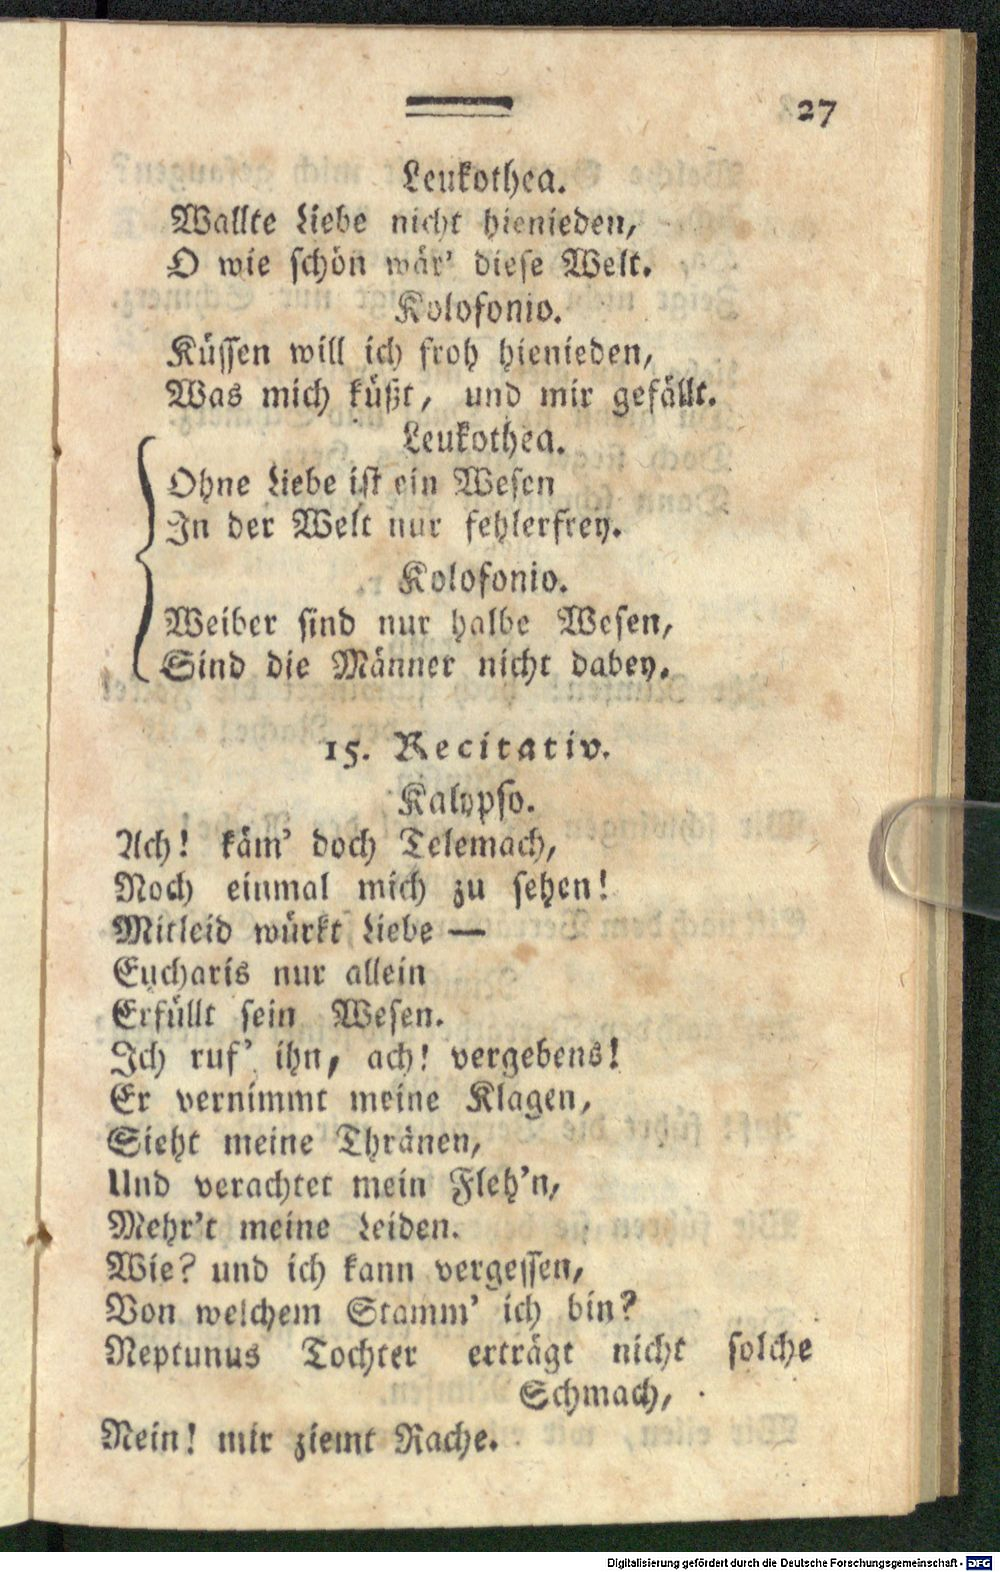 27
Leukothea.
Wallte Liebe nicht hienieden,
O wie schön wär' diese Welt.
Kolofonio.
Küssen will ich froh hienieden,
Was mich küßt, und mir gefällt.
Leukothea.
Ohne Liebe ist ein Wesen
In der Welt nur fehlerfrey.
Kolofonio.
Weiber sind nur halbe Wesen,
Sind die Männer nicht dabey.
15. Recitativ.
Kalypso.
Ach! käm' doch Telemach,
Noch einmal mich zu sehen!
Mitleid würkt Liebe —
Eucharis nur allein
Erfüllt sein Wesen.
Ich ruf' ihn, ach! vergebens!
Er vernimmt meine Klagen,
Sieht meine Thränen,
Und verachtet mein Fleh'n,
Mehr't meine Leiden.
Wie? und ich kann vergessen,
Von welchem Stamm' ich bin?
Neptunus Tochter erträgt nicht solche
Schmach,
Nein! mir ziemt Rache.
Digitalisierung gefördert durch die Deutsche Forschungsgemeinschaft - DFG